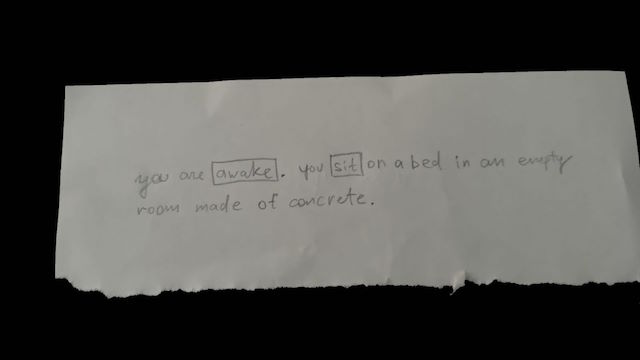 you are awake. you sit on a bed in an empty
room made of concrete.